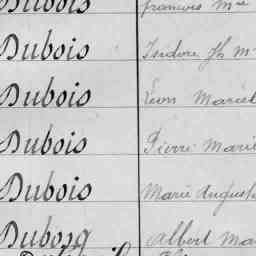 Dubois françois Mie
Dubois Isidore Jh M
Dubois Léon Marcel
Dubois Pierre Marie
Dubois Marie Auguste
Dubosq Albert Ma